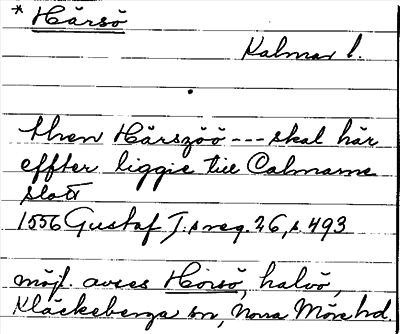 * Hårsö
Kalmar l.
then Hårszöö --- skal här
effter liggie till Calmarne
slott
1556 Gustaf I:s reg. 26, s. 493
möjl. avses Horsö, halvö,
Kläckeberga sn, Norra Möre hd.